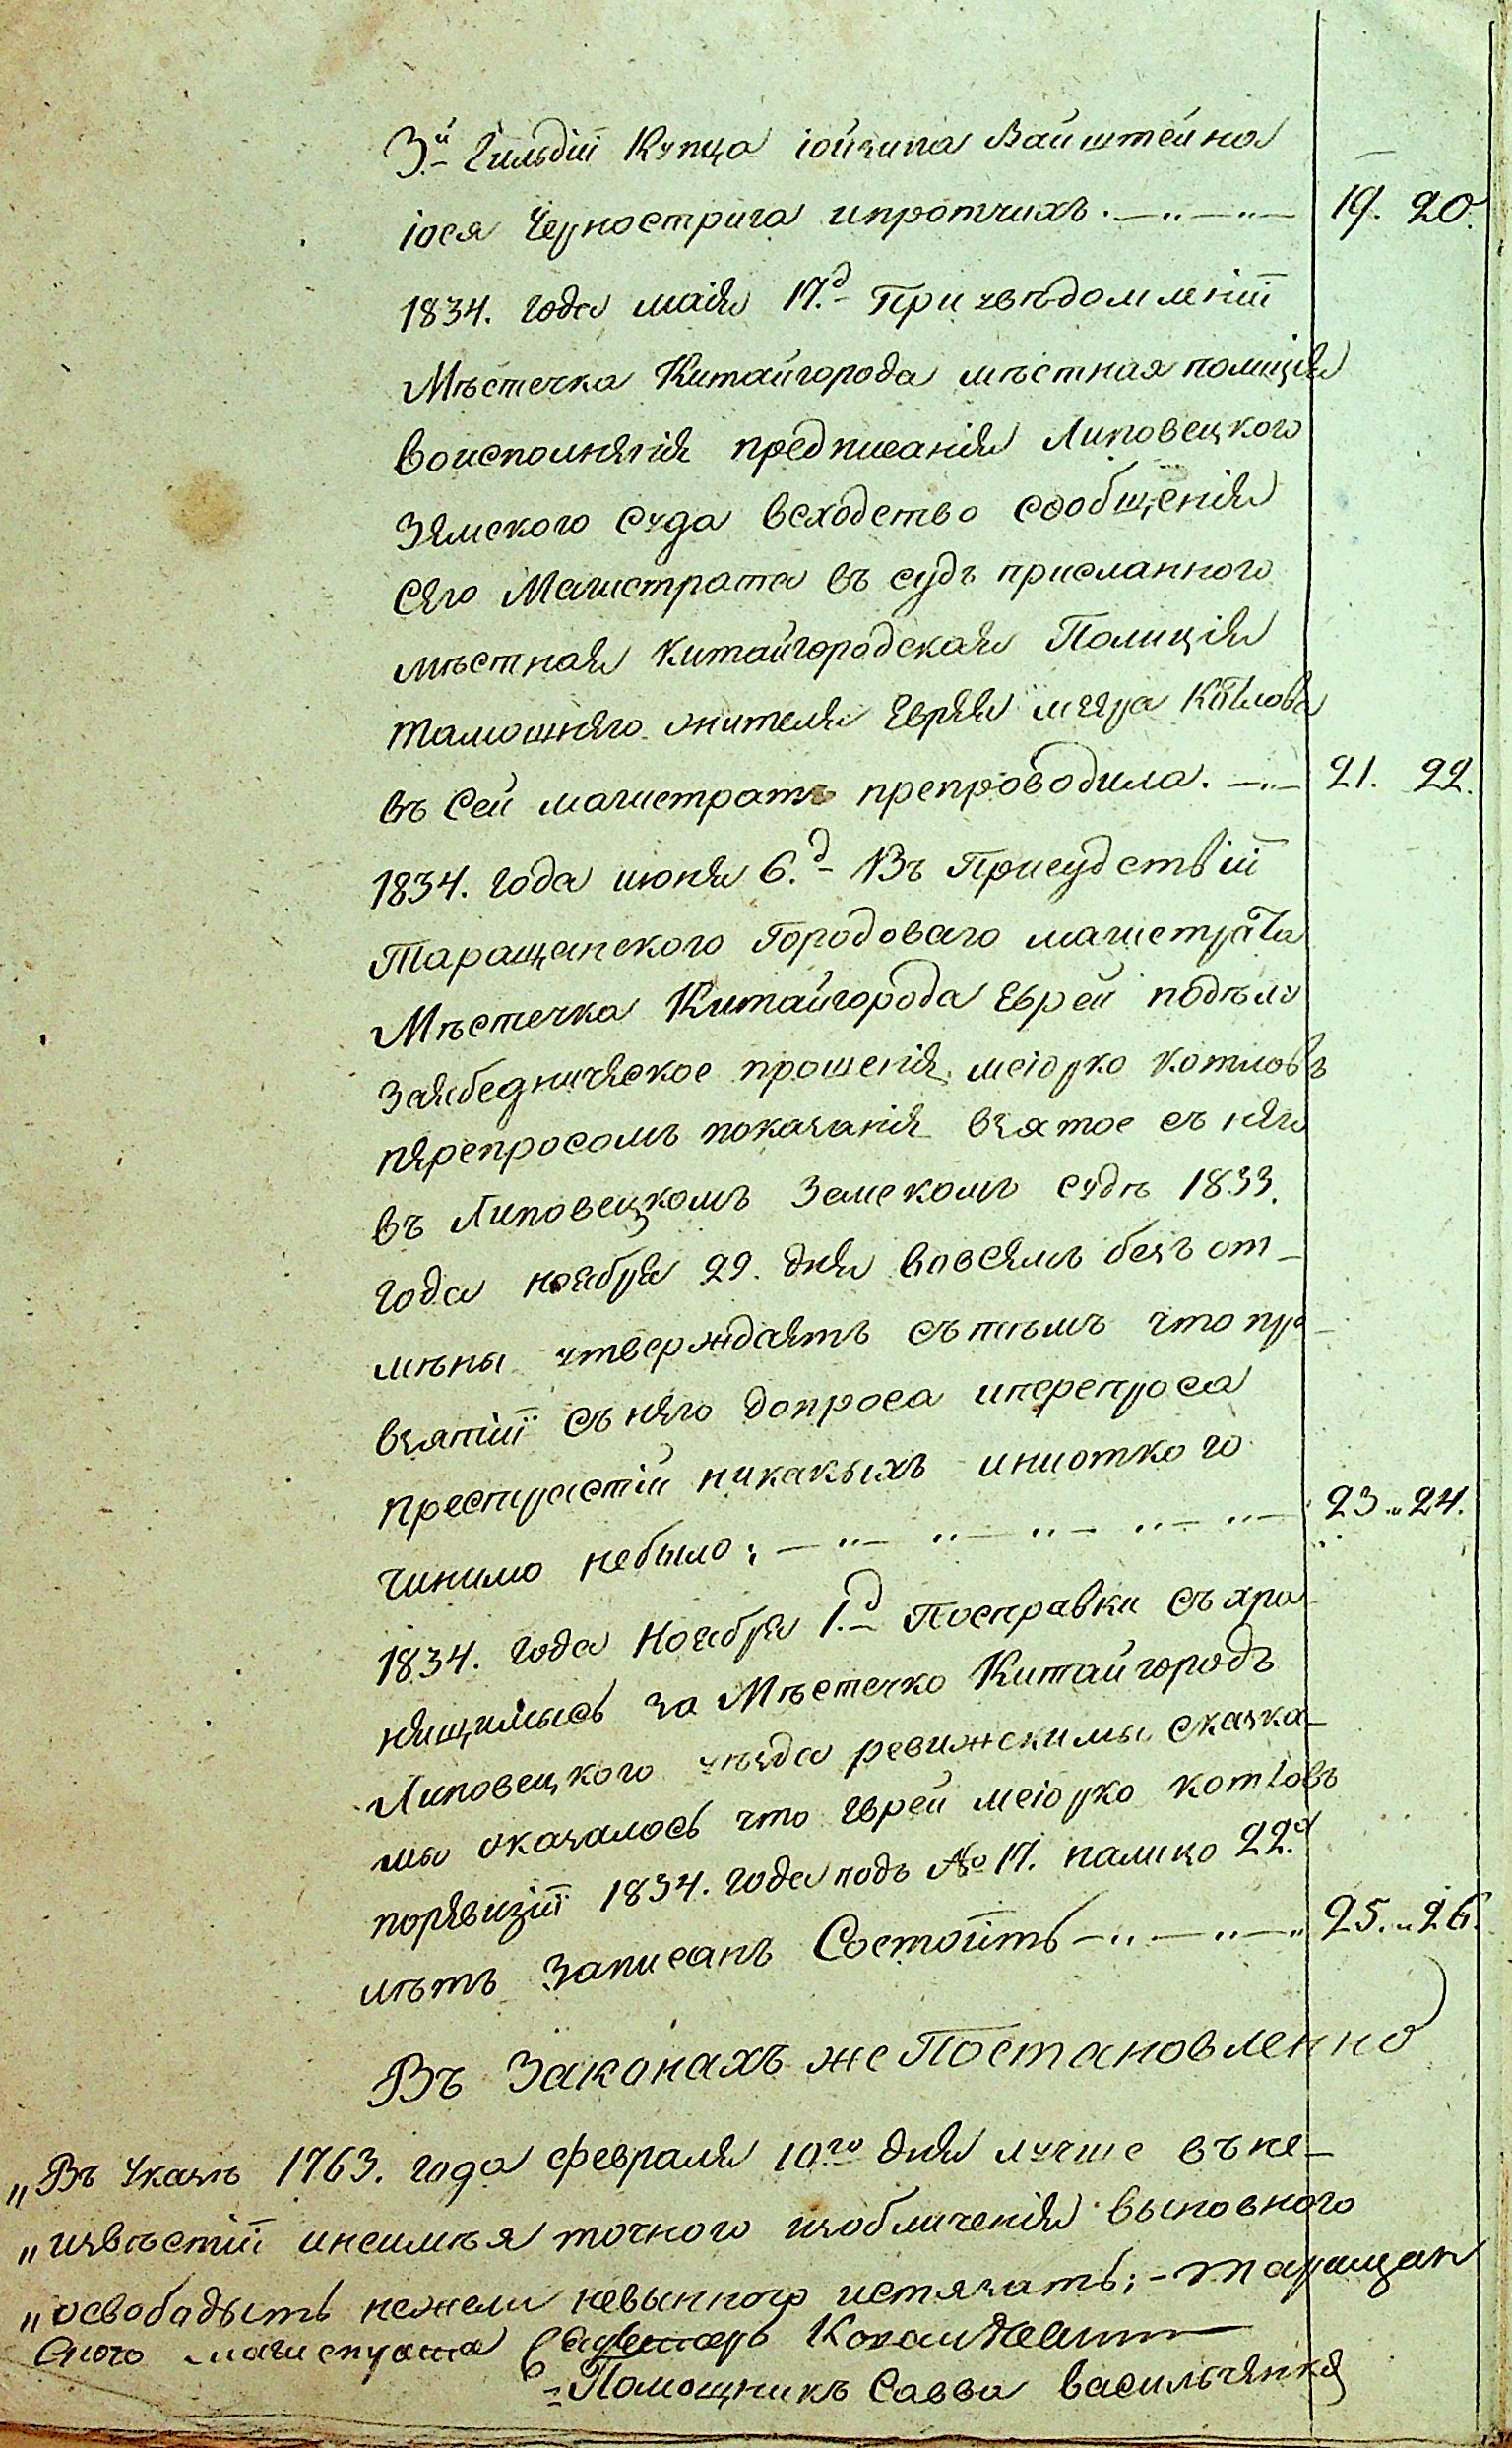 3.й Гильдіи Купца іойзипа Вайштейна
іося Чернострига ипротчихъ. 19. 20.
1834. года маія 17.д При увѣдомленіи
Мѣстечка Китайгорода мѣстная полиція
воисполнянія предписанія Липовецкого
Зямского Суда всходство сообщенія
сяго Магистрата въ судъ присланного
мѣстная Китайгородская Полиція
тамошняго жителя Еврея меера Котлова
въ Сей магистратъ препроводила. 21. 22.
1834. года июня 6.д Въ Присудствіи
Таращанского Городоваго магистрата
Мѣстечка Китайгорода Еврей подѣлу
Заябедничяское прошенія меіорко котловъ
пярепросомъ показанія взятое съ няго
въ Липовецкомъ Земскомъ судѣ 1833.
года ноября 29. дня вовсямъ безъ от-
мѣны утверждаятъ сътѣмъ что при
взятіи съняго допроса иперепроса
престрастій никакыхъ иниоткого
чинимо небыло; 23.и 24.
1834. года Ноября 1.д Посправки съхра-
нящимысь за Мѣстечко Китайгородъ
Липовецкого уѣзда ревижскимы сказка-
мы оказалось что Еврей меіорко котловъ
порявизіи 1834. года подъ № 17. палицо 22.
лѣтъ записанъ Состоитъ 25. и 26.
Въ Законахъ же Постановленно
„Въ Указѣ 1763. года февраля 10го дня лучше въне-
„извѣстіи инеимѣя точного изобличенія выновного
„освобадыть нежели невынного истязать; - Таращан
ского магистрата Секретарь
Помощникъ Савва васильчянко